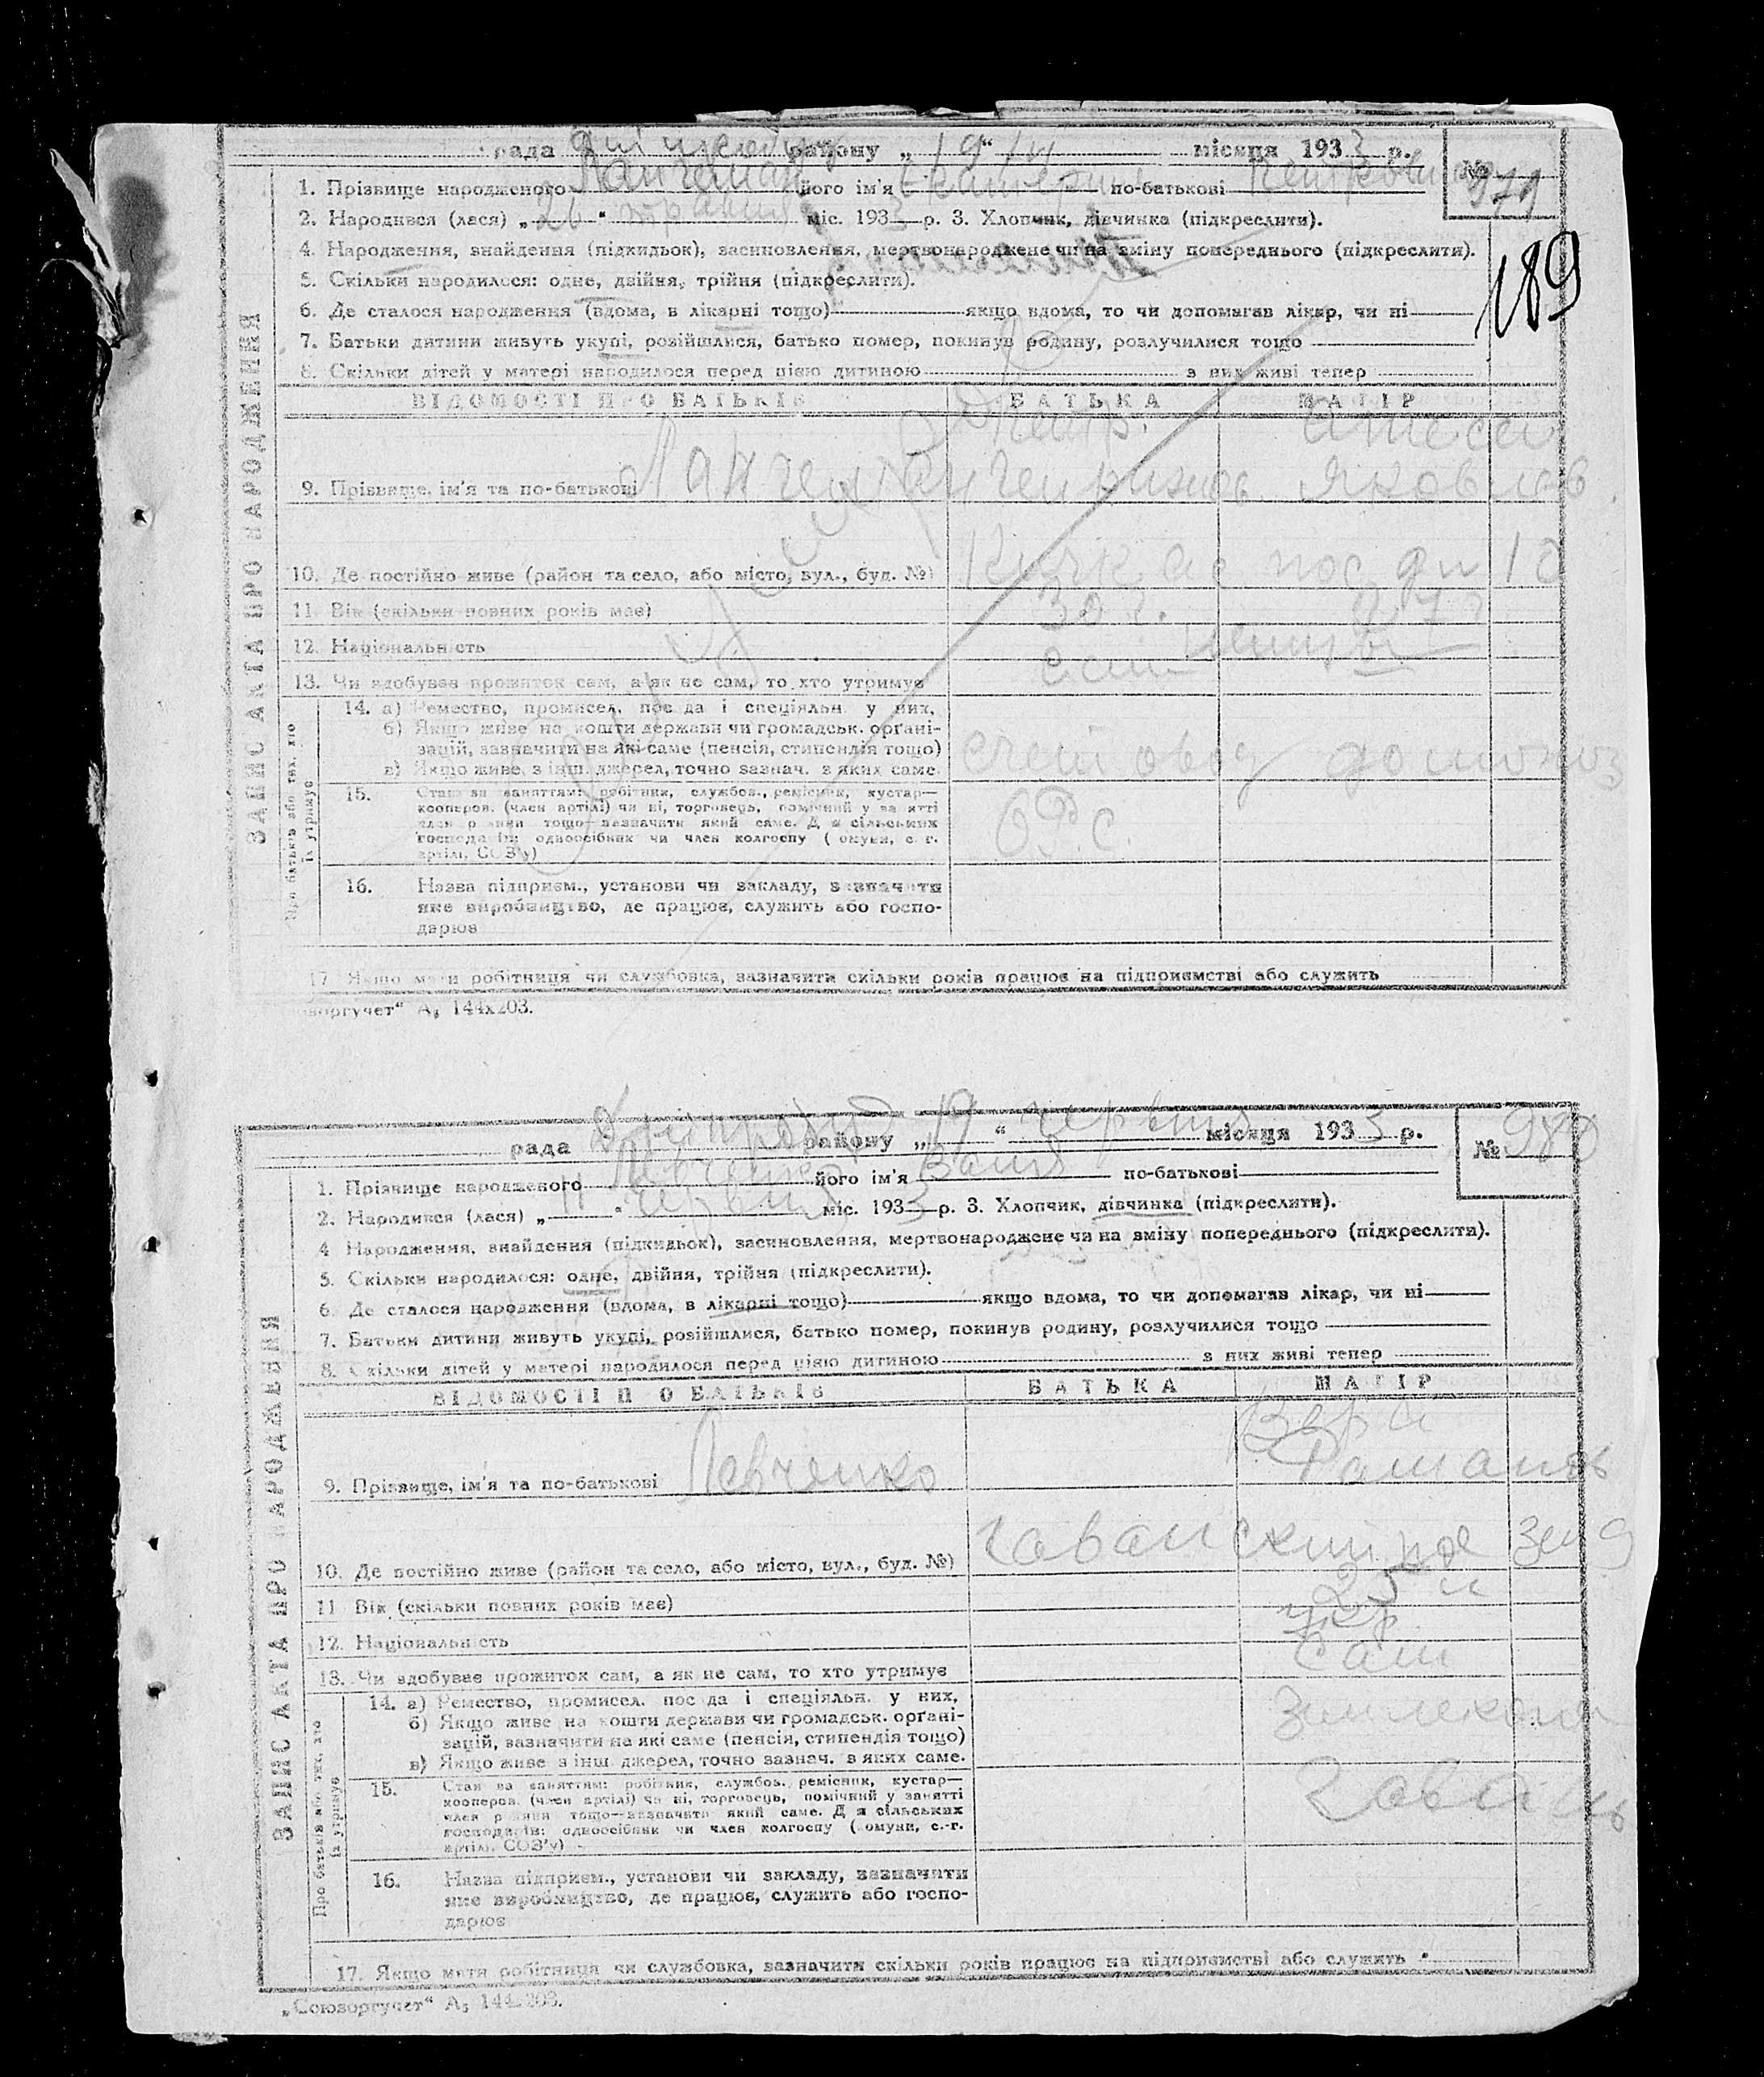 рада району „19" місяця 1933 р. №
979
1. Прізвище народженого його ім'я по-батькові
2. Народився (лася) „26" травня міс. 193 р. 3. Хлопчик, дівчинка (підкреслити).
189
4. Народження, знайдення (підкидьок), засиновлення, мертвонароджене чи на зміну попереднього (підкреслити).
5. Скільки народилося: одне, двійня, трійня (підкреслити).
6. Де сталося народження (вдома, в лікарні тощо) якщо вдома, то чи допомагав лікар, чи ні
7. Батьки дитини живуть укупі, розійшлися, батько помер, покинув родину, розлучилися тощо
8. Скільки дітей у матері народилося перед цією дитиною з них живі тепер
ВІДОМОСТІ ПРО БАТЬКІВ БАТЬКА МАТІР
Петр
9. Прізвище, ім'я та по-батькові Яковлев.
10. Де постійно живе (район та село, або місто, вул., буд. №) Кичкас пос
11. Вік (скільки повних років має) 30 г. 27 г
12. Національність немцы
13. Чи здобуває прожиток сам, а як не сам, то хто утримує сам
ЗАПИС АКТА ПРО НАРОДЖЕННЯ
Про батьків або тих, хто їх утримує
14. а) Ремество, промисел, посада і спеціяльн. у них,
б) Якщо живе на кошти держави чи громадськ. орґані-
зацій, зазначити на які саме (пенсія, стипендія тощо)
в) Якщо живе з інш. джерел, точно зазнач. з яких саме.
счетовод домохоз
15. Стан за заняттям: робітник, службов., ремісник, кустар—
кооперов. (член артілі) чи ні, торговець, помічний у занятті
член родини тощо—зазначити який саме. Для сільських
господарів: одноосібник чи член колгоспу (комуни, с.-г.
артілі, СОЗ'у)
ОРС.
16. Назва підприєм., установи чи закладу, зазначити
яке виробництво, де працює, служить або госпо-
дарює
17. Якщо мати робітниця чи службовка, зазначити скільки років працює на підприємстві або служить
оюзоргучет" А5 144х203.
рада району „19" червня місяця 1933 р. № 980
1. Прізвище народженого Левченко його ім'я по-батькові
2. Народився (лася) „11" червня міс. 1933 р. 3. Хлопчик, дівчинка (підкреслити).
4 Народження, знайдення (підкидьок), засиновлення, мертвонароджене чи на зміну попереднього (підкреслити).
5. Скільки народилося: одне, двійня, трійня (підкреслити).
6. Де сталося народження (вдома, в лікарні тощо) якщо вдома, то чи допомагав лікар, чи ні
7. Батьки дитини живуть укупі, розійшлися, батько помер, покинув родину, розлучилися тощо
8. Скільки дітей у матері народилося перед цією дитиною з них живі тепер
ВІДОМОСТІ П О БАТЬКІВ БАТЬКА МАТІР
Вера
9. Прізвище, ім'я та по-батькові Левченко
10. Де постійно живе (район та село, або місто, вул., буд. №)
11 Вік (скільки повних років має) 25
12. Національність укр
13. Чи здобуває прожиток сам, а як не сам, то хто утримує сам
ЗАПИС АКТА ПРО НАРОДЖЕННЯ
Про батьків або тих, хто їх утримує
14. а) Ремество, промисел. посада і спеціяльн. у них,
б) Якщо живе на кошти держави чи громадськ. орґані-
зацій, зазначити на які саме (пенсія, стипендія тощо)
в) Якщо живе з інш. джерел, точно зазнач. з яких саме.
землекоп
15. Стан за заняттям: робітник, службов., ремісник, кустар—
кооперов. (член артілі) чи ні, торговець, помічний у занятті
член родини тощо—зазначити який саме. Для сільських
господарів: одноосібник чи член колгоспу (комуни, с.-г.
артілі, СОЗ'у)
16. Назва підприєм., установи чи закладу, зазначити
яке виробництво, де працює, служить або госпо-
дарює
17. Якщо мати робітниця чи службовка, зазначити скільки років працює на підприємстві або служить
„Союзоргучет" А5 144х203.